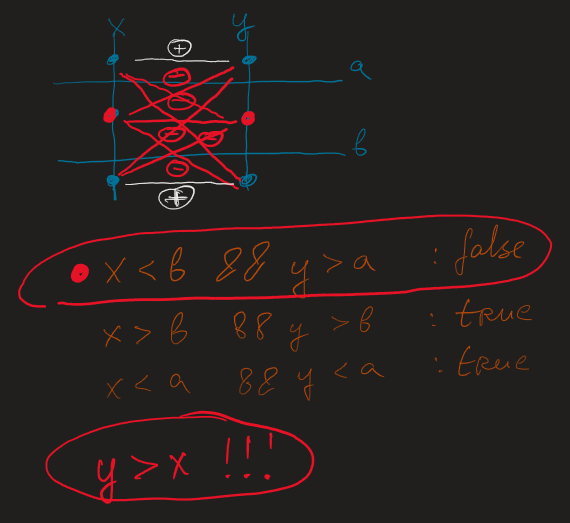 x y
+
a
-
-
- -
b
-
+
x < b && y > a : false
x > b && y > b : true
x < a && y < a : true
y > x !!!